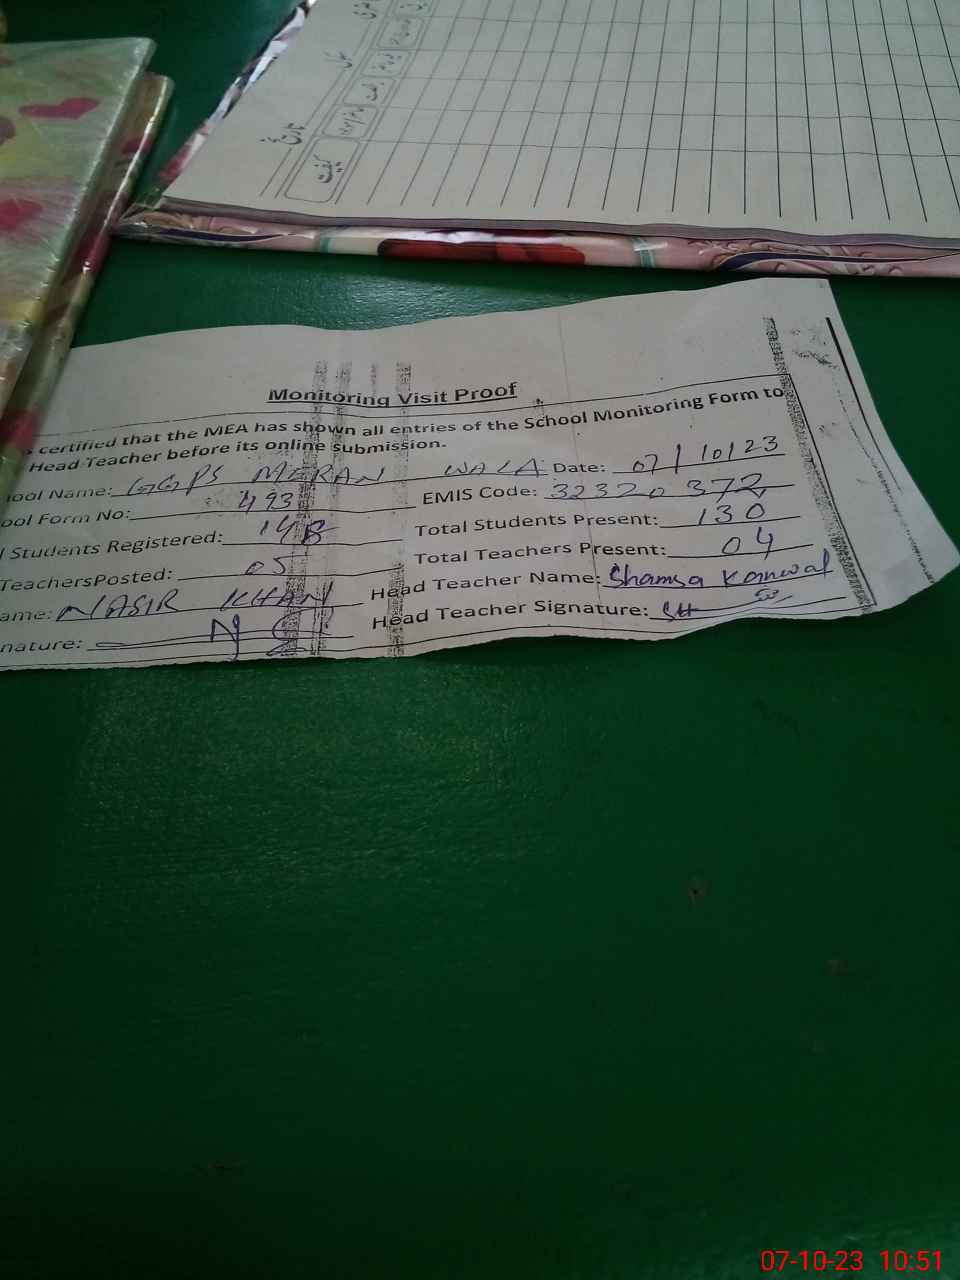 کیفیت
Monitoring Visit Proof
certified that the MEA has shown all entries of the School Monitoring Form to
Head Teacher before its online submission.
ool Name: GGPS MERAN WALA Date: 07/10/23
ool Form No: 493 EMIS Code: 32320372
l Students Registered: 148 Total Students Present: 130
TeachersPosted: 05 Total Teachers Present: 04
ame: NASIR KHAN Head Teacher Name: Shamsa Kanwal
nature: Head Teacher Signature:
07-10-23 10:51